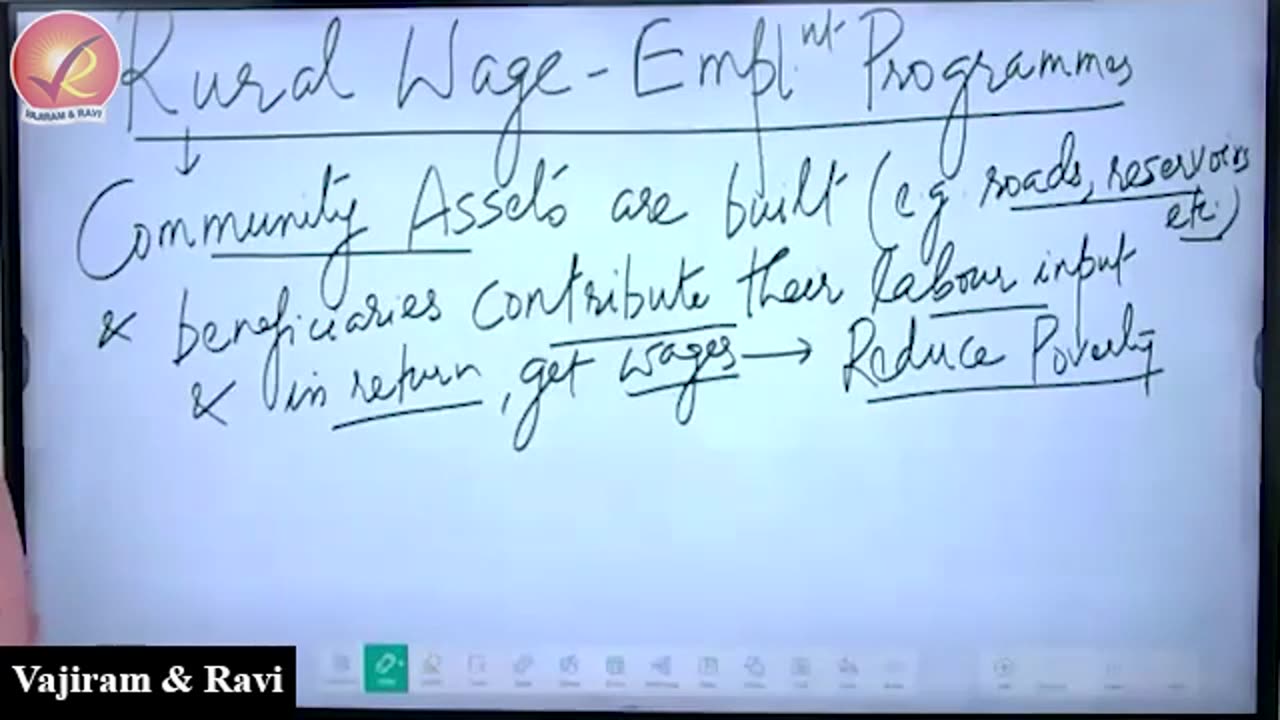 VAJIRAM & RAVI
Rural Wage-Empl.nt Programmes
↓
Community Assets are built (e.g. roads, reservoirs etc.)
& beneficiaries contribute their labour input
& in return, get wages → Reduce Poverty
Vajiram & Ravi